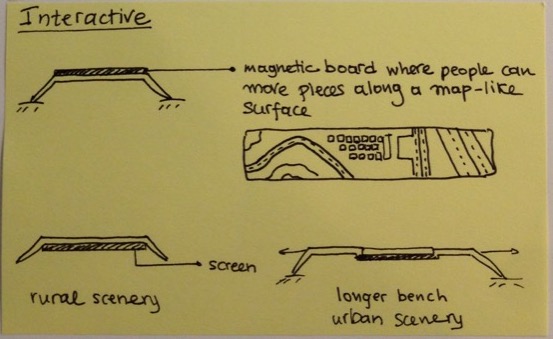 Interactive
magnetic board where people can
move pieces along a map-like
surface
screen
rural scenery
longer bench
urban scenery